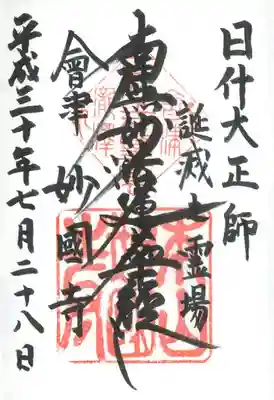 日什大正師
誕滅之霊場
南無妙法蓮華経
妙國寺
會津
平成三十年七月二十八日